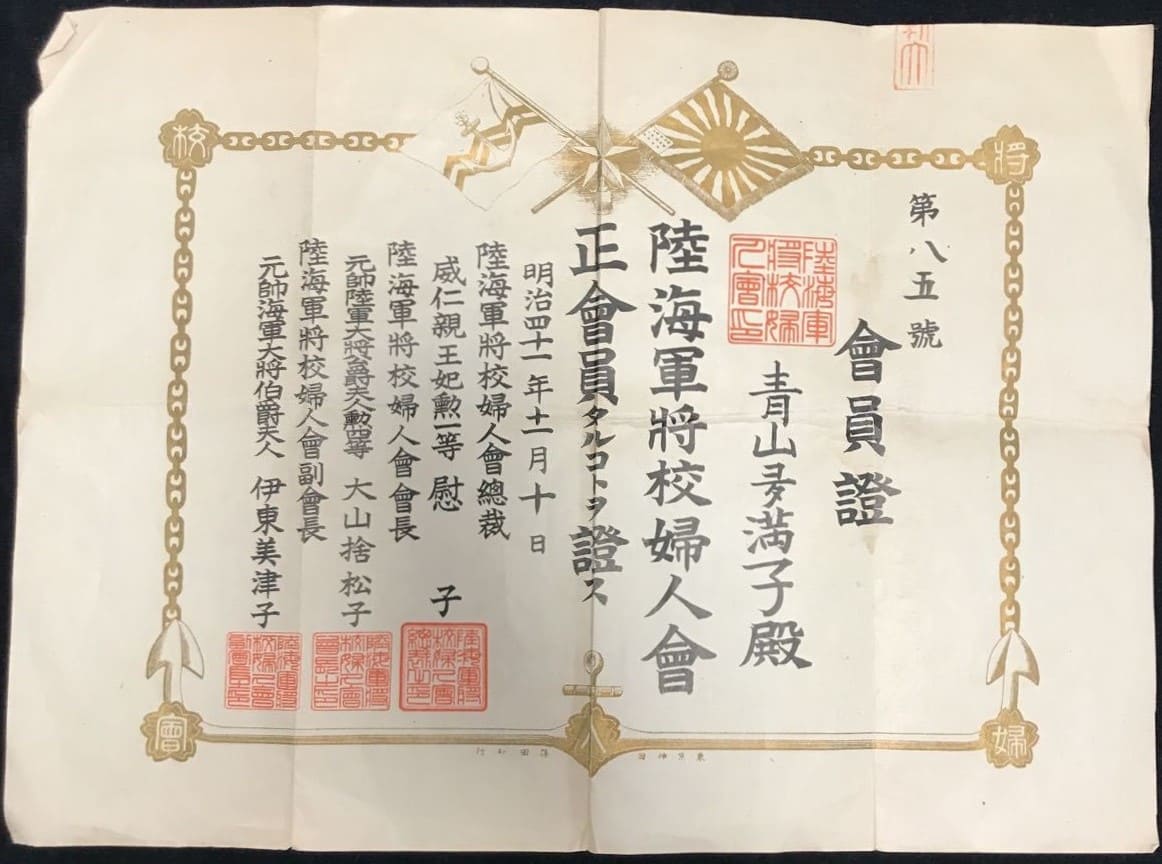 第八五號
會員證
青山多満子殿
陸海軍將校婦人會
正會員タルコトヲ證ス
明治四十一年十一月十日
陸海軍將校婦人會總裁
威仁親王妃勲一等 慰子
陸海軍將校婦人會會長
元帥陸軍大將公爵夫人勲四等 大山捨松子
陸海軍將校婦人會副會長
元帥海軍大將伯爵夫人 伊東美津子
陸海軍
將校婦
人會印
將
校
婦
人
會
東京神田